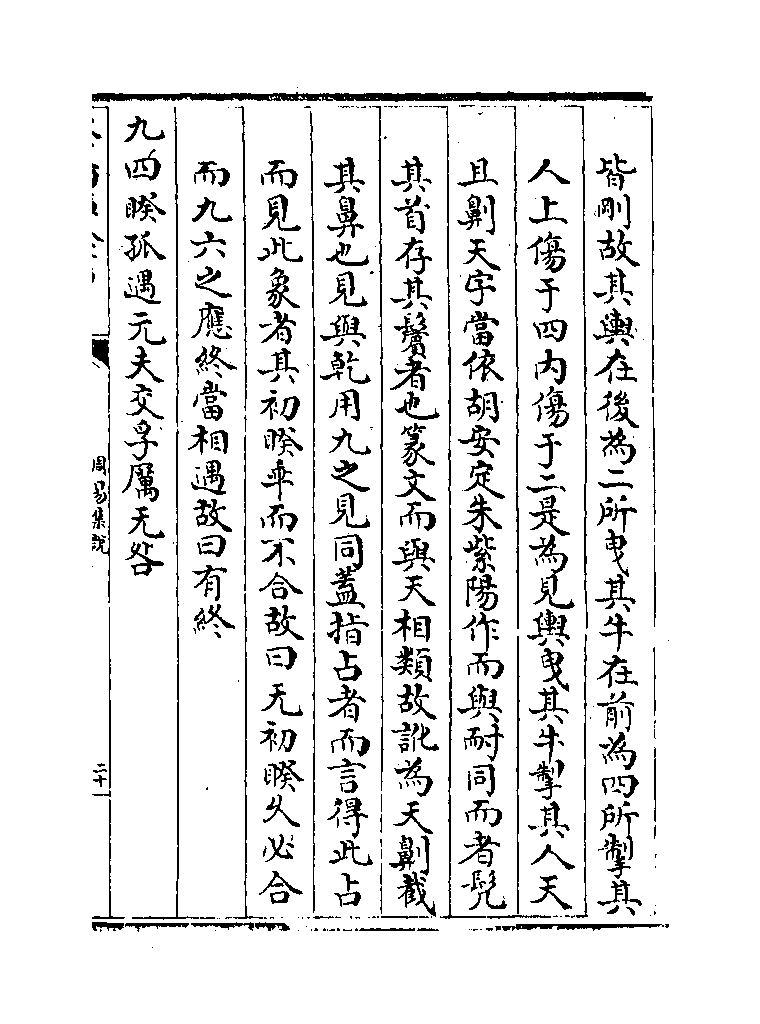 皆剛故其輿在後為二所曳其牛在前為四所掣其
人上傷于四内傷于二是為見輿曳其牛掣其人天
且劓天字當依胡安定朱紫陽作而與耐同而者髠
其首存其鬢者也篆文而與天相類故訛為天劓截
其鼻也見與乾用九之見同蓋指占者而言得此占
而見此象者其初睽乖而不合故曰无初睽久必合
而九六之應終當相遇故曰有終
九四睽孤遇元夫交孚厲无咎
周易集說
二十